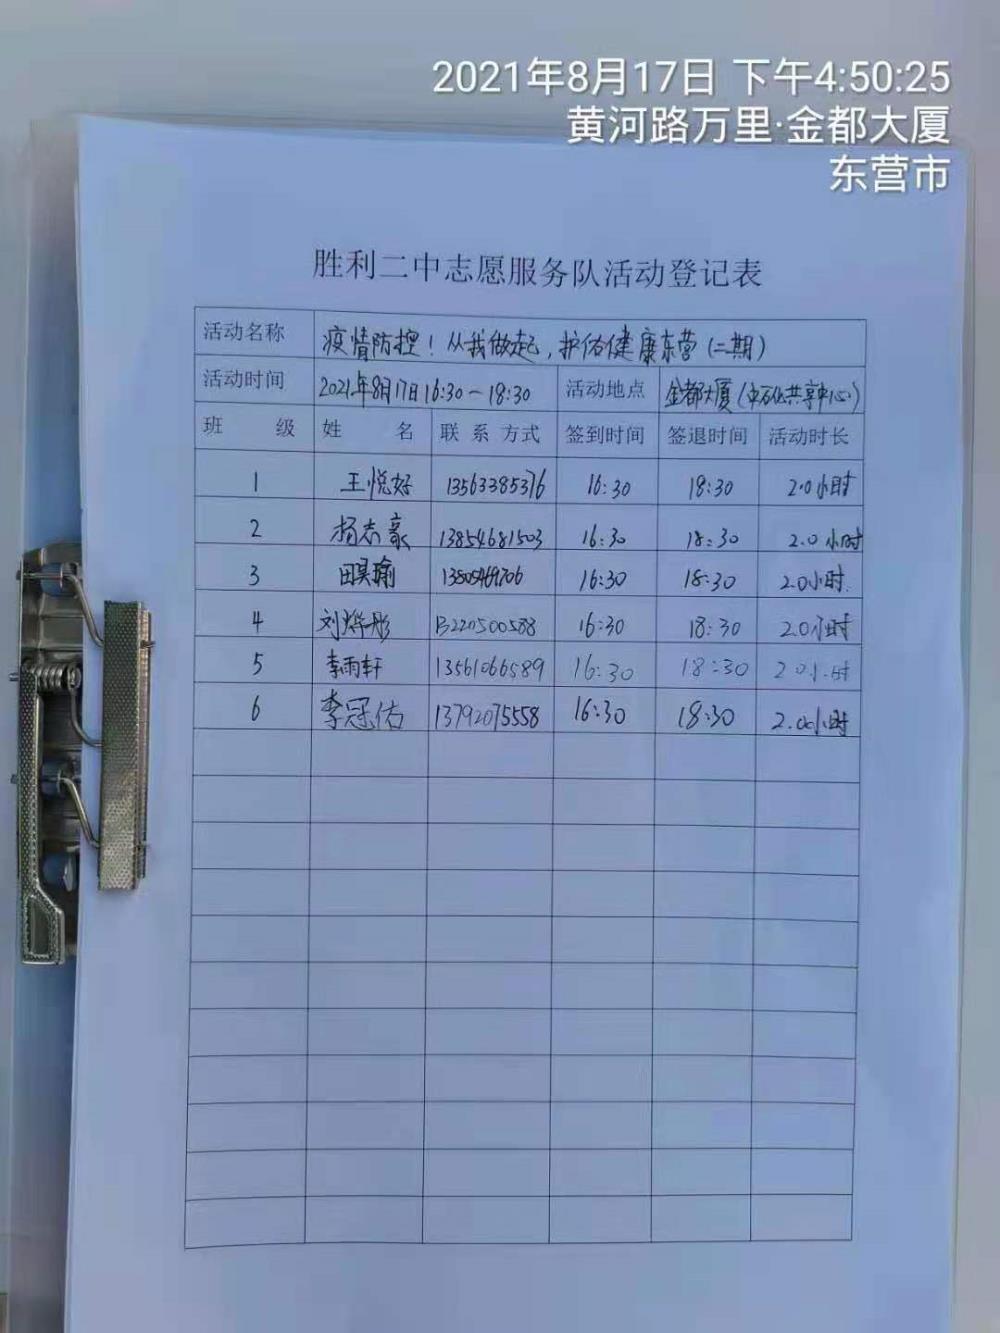 2021年8月17日 下午4:50:25
黄河路万里·金都大厦
东营市
胜利二中志愿服务队活动登记表
活动名称 疫情防控！从我做起，护佑健康东营（二期）
活动时间 2021年8月17日16:30-18:30 活动地点 金都大厦（中石化共享中心）
班 级 姓 名 联系方式 签到时间 签退时间 活动时长
1 王悦好 13563385376 16:30 18:30 2.0小时
2 杨志豪 13854681503 16:30 18:30 2.0小时
3 田昊瑜 16:30 18:30 2.0小时
4 刘烨彤 13220500588 16:30 18:30 2.0小时
5 李雨轩 13561066589 16:30 18:30 2.0小时
6 李冠佑 13792075558 16:30 18:30 2.0小时